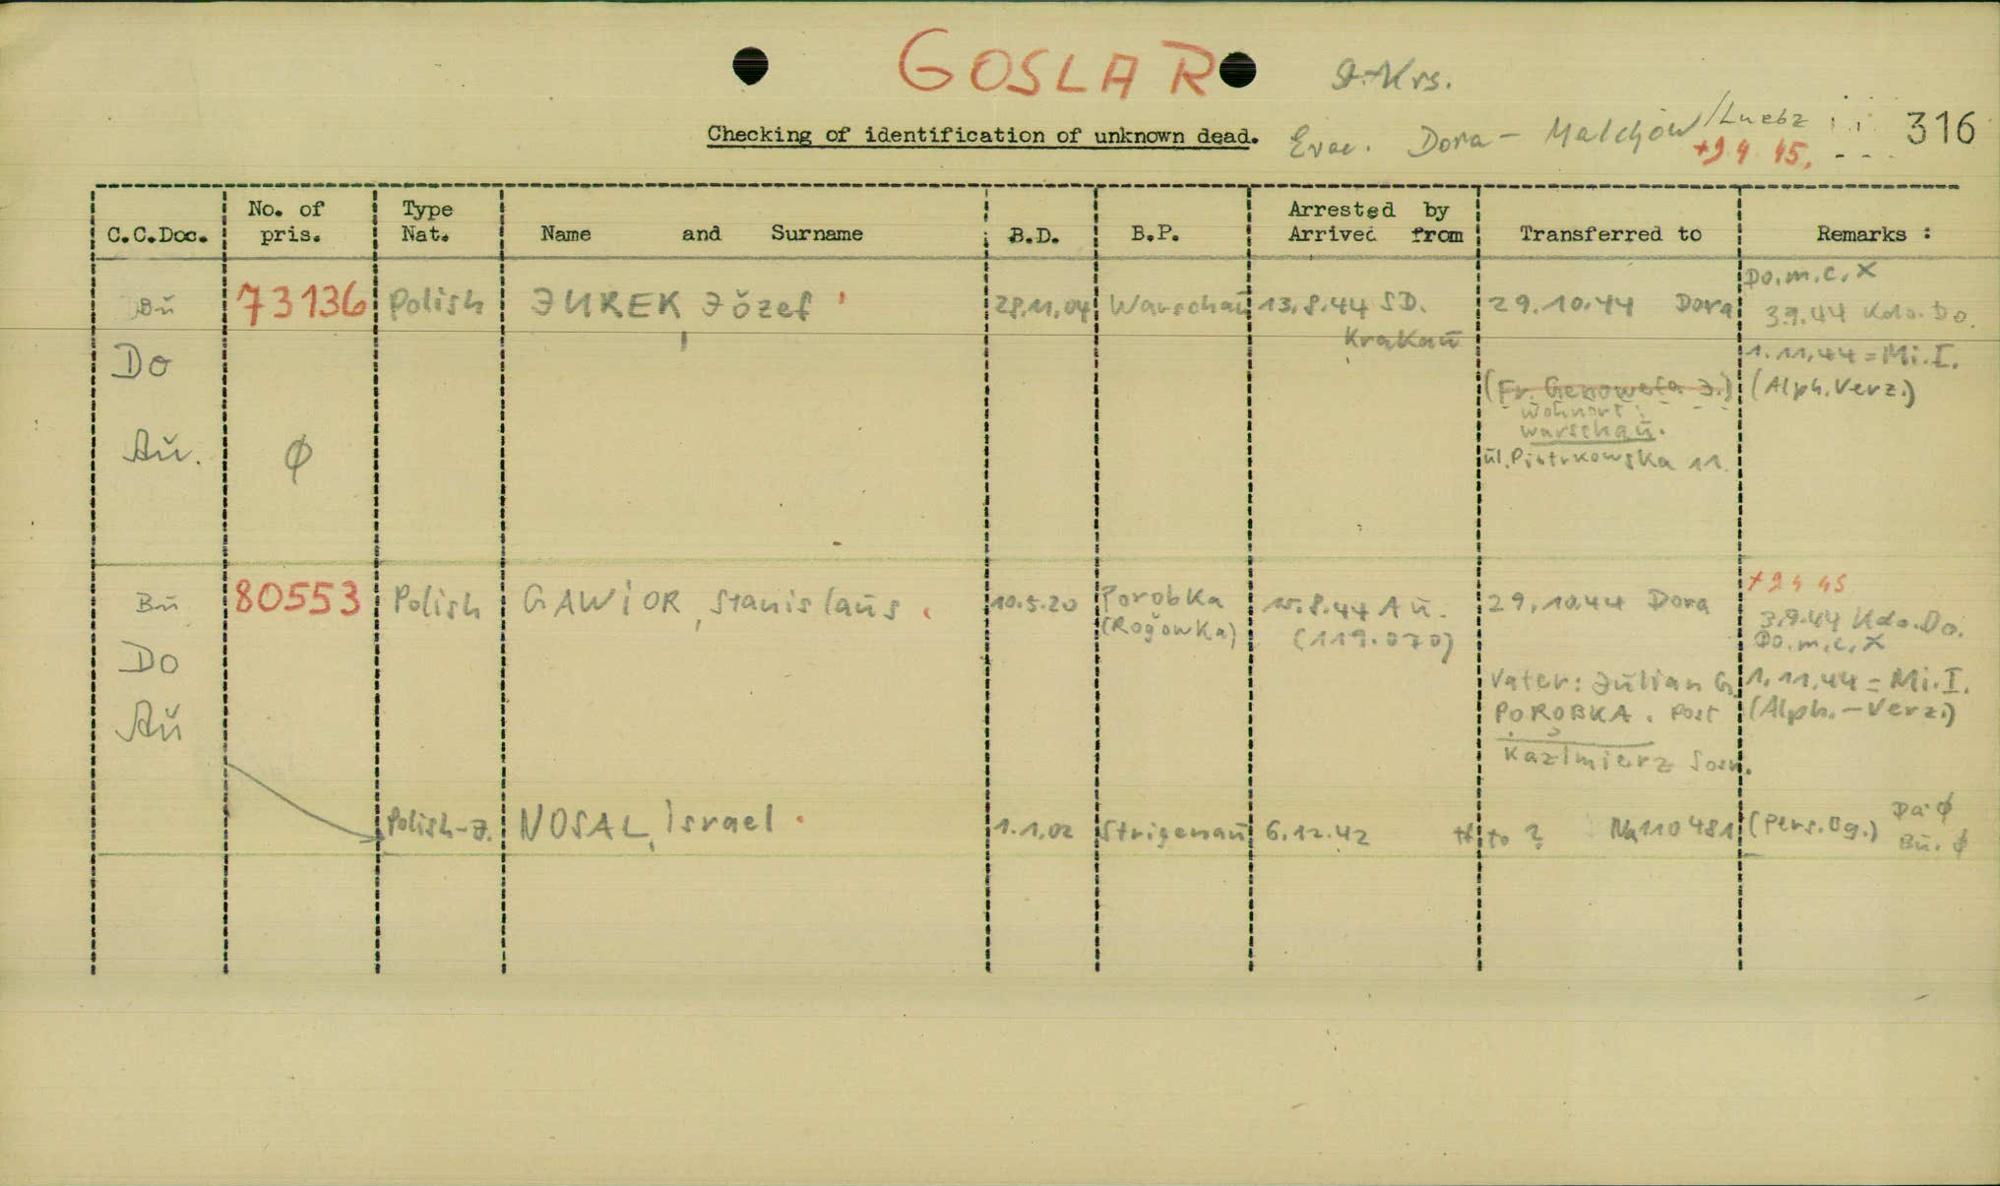 GOSLAR
Checking of identification of unknown dead.
Evac. Dora - Malchow/Luebz
+9.4 45.
316
C.C.Doc.
No. of pris.
Type Nat.
Name and Surname
B.D.
B.P.
Arrested by
Arrived from
Transferred to
Remarks :
Bŭ 73136 Polish JUREK, Józef 28.11.04 Warschaŭ 13.8.44 SD. Krakaŭ 29.10.44 Dora
Do.m.c.X
3.9.44 Kdo.Do.
1.11.44=Mi.I.
(Alph.Verz.)
Do
(Fr. Genowefa J.)
Wohnort:
Warschaŭ.
ŭl. Piotrkowska 11.
Aŭ. ∅
Bŭ 80553 Polish GAWIOR, Stanislaŭs. 10.5.20 Porobka (Rogowka) 15.8.44 Aŭ. (119.070) 29.10.44 Dora
+9 4 45
3.9.44 Kdo.Do.
Do.m.c.X
1.11.44=Mi.I.
(Alph.-Verz.)
Do
Vater: Jŭlian G.
POROBKA. Post
Kazimierz Sosn.
Aŭ
Polish-J. NOSAL, Israel. 1.1.02 Strigenaŭ 6.12.42 to ? Na 110481 (Pers.Bg.) Da.∅
Bŭ.∅